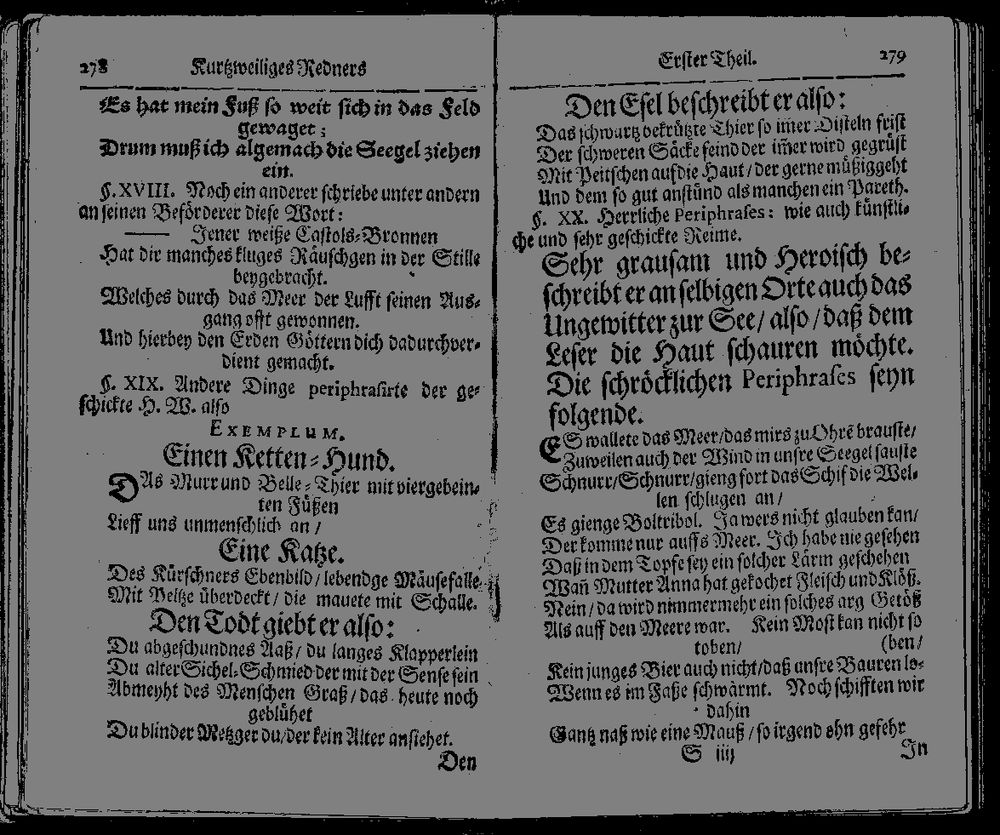 278 Kurtzweiliges Redners
Es hat mein Fuß so weit sich in das Feld
gewaget;
Drum muß ich algemach die Seegel ziehen
ein.
§. XVIII. Noch ein anderer schriebe unter andern
an seinen Beförderer diese Wort:
—— Jener weiße Castols-Bronnen
Hat dir manches kluges Räuschgen in der Stille
beygebracht.
Welches durch das Meer der Lufft seinen Aus-
gang offt gewonnen.
Und hierbey den Erden Göttern dich dadurch ver-
dient gemacht.
§. XIX. Andere Dinge periphrasirte der ge-
schickte H. W. also
EXEMPLUM.
Einen Ketten-Hund.
DAs Murr und Belle-Thier mit vier gebein-
ten Füßen
Lieff uns unmenschlich an /
Eine Katze.
Des Kürschners Ebenbild / lebendge Mäusefalle
Mit Beltze überdeckt / die mauete mit Schalle.
Den Todt giebt er also:
Du abgeschundnes Aaß / du langes Klapperlein
Du alter Sichel-Schmied der mit der Sense sein
Abmeyht des Menschen Graß / das heute noch
geblühet
Du blinder Metzger du / der kein Alter ansiehet.
Den
Erster Theil. 279
Den Esel beschreibt er also:
Das schwartz bekrützte Thier so im̃er Disteln frist
Der schweren Säcke feind der im̃er wird gegrüst
Mit Peitschen auf die Haut / der gerne müßiggeht
Und dem so gut anstünd als manchen ein Pareth.
§. XX. Herrliche Periphrases: wie auch künstli-
che und sehr geschickte Reime.
Sehr grausam und Heroisch be-
schreibt er an selbigen Orte auch das
Ungewitter zur See / also / daß dem
Leser die Haut schauren möchte.
Die schröcklichen Periphrases seyn
folgende.
ES wallete das Meer / das mirs zu Ohrẽ brauste /
Zuweilen auch der Wind in unsre Seegel sauste
Schnurr / Schnurr / gieng fort das Schif die Wel-
len schlugen an /
Es gienge Boltribol. Ja wers nicht glauben kan /
Der komme nur auffs Meer. Ich habe nie gesehen
Daß in dem Topfe sey ein solcher Lärm geschehen
Wañ Mutter Anna hat gekochet Fleisch und Klöß.
Nein / da wird nimmermehr ein solches arg Getöß
Als auff den Meere war. Kein Most kan nicht so
toben / (ben /
Kein junges Bier auch nicht / daß unsre Bauren lo-
Wenn es im Faße schwärmt. Noch schifften wir
dahin
Gantz naß wie eine Mauß / so irgend ohn gefehr
S iiij In